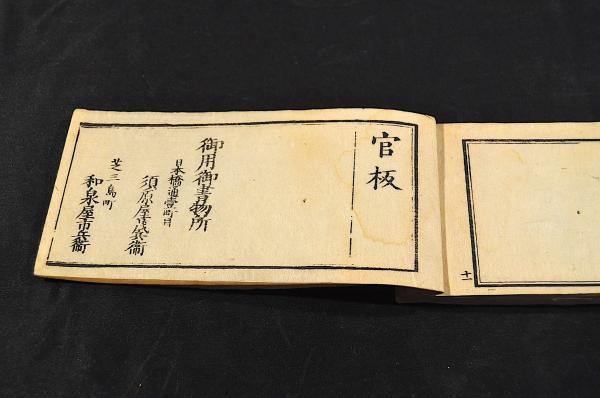 官板
御用御書物所
日本橋通壹町目
須原屋茂兵衞
芝三島町
和泉屋市兵衞
十一